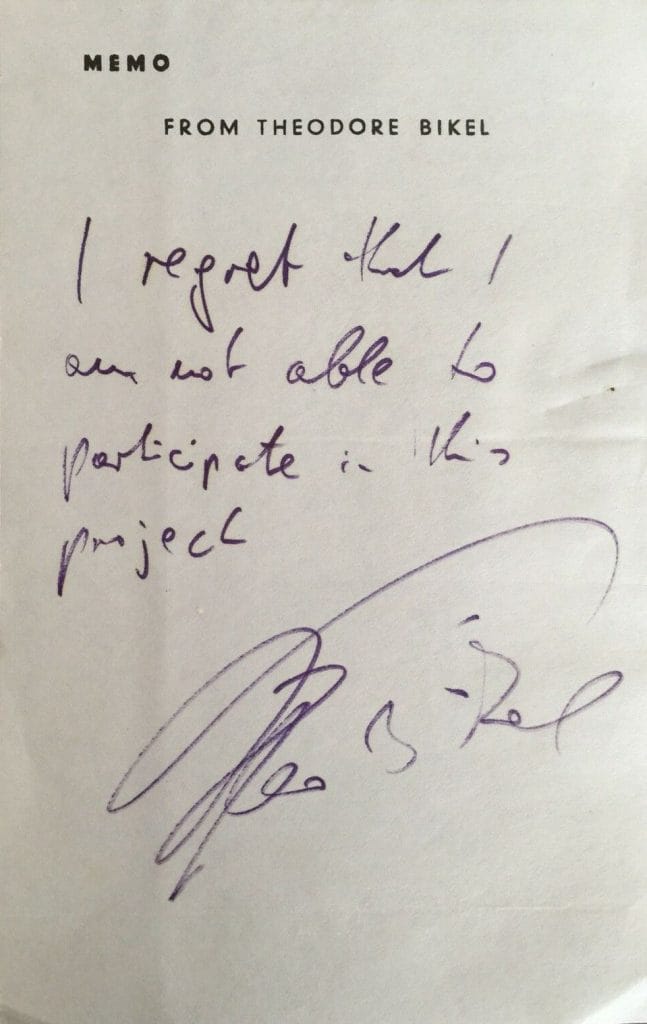 MEMO
FROM THEODORE BIKEL
I regret that I
am not able to
participate in this
project
Theo Bikel